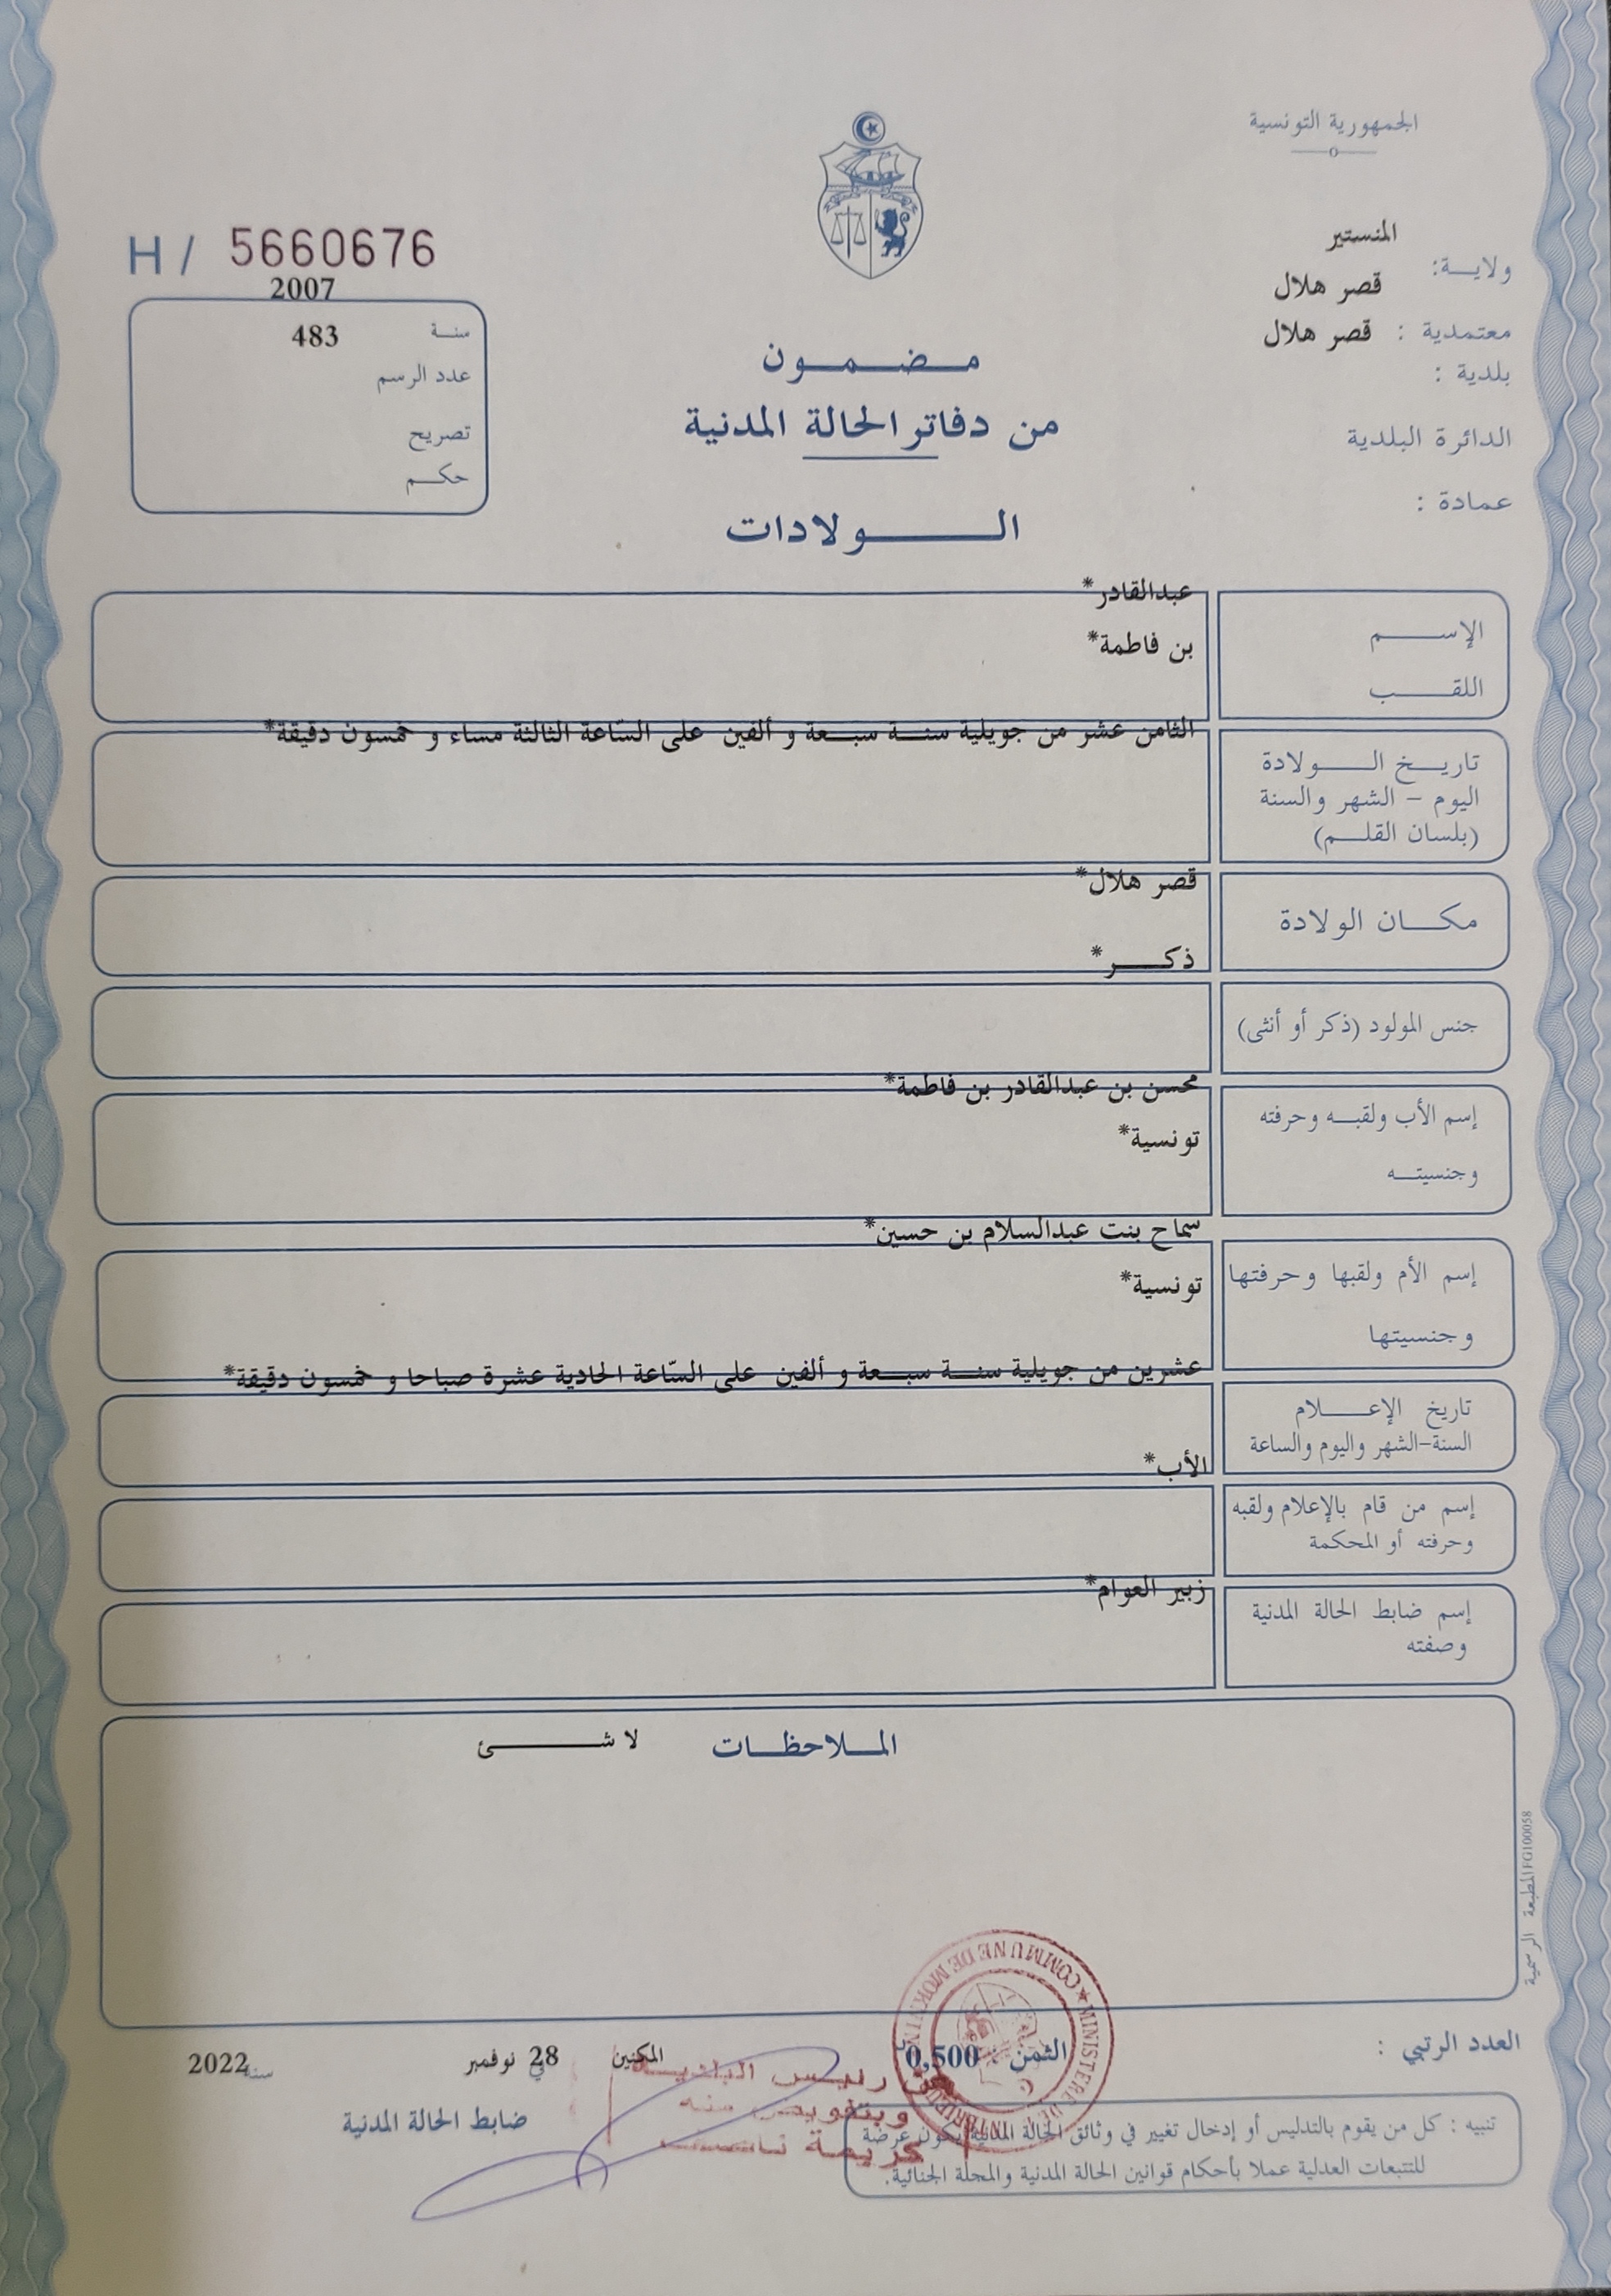 الجمهورية التونسية
المنستير
ولايـــة:
قصر هلال
معتمدية : قصر هلال
بلدية :
الدائرة البلدية
عمادة :
H / 5660676
2007
سنـــة 483
عدد الرسم
تصريح
حكـــم
مـــضـــمـــون
من دفاتر الحالة المدنية
الـــــولادات
عبدالقادر*
الإســـــم
بن فاطمة*
اللقـــــب
الثامن عشر من جويلية سنـــة سبـــعة و ألفين على السّاعة الثالثة مساء و خمسون دقيقة*
تاريـــخ الـــــولادة
اليوم – الشهر والسنة
(بلسان القلـــم)
قصر هلال*
مكـــان الولادة
ذكـــــر*
جنس المولود (ذكر أو أنثى)
محسن بن عبدالقادر بن فاطمة*
إسم الأب ولقبـــه وحرفته
تونسية*
وجنسيتـــه
سماح بنت عبدالسلام بن حسين*
إسم الأم ولقبها وحرفتها
تونسية*
وجنسيتها
عشرين من جويلية سنـــة سبـــعة و ألفين على السّاعة الحادية عشرة صباحا و خمسون دقيقة*
تاريخ الإعـــــلام
السنة-الشهر واليوم والساعة
الأب*
إسم من قام بالإعلام ولقبه
وحرفته أو المحكمة
زبير العوام*
إسم ضابط الحالة المدنية
وصفته
المـــلاحظـــات لا شـــــئ
المطبعة الرسمية FG100058
العدد الرتبي :
الثمن : 0,500
المكنين في 28 نوفمبر سنة 2022
COMMUNE DE MOKNINE ★ MINISTERE DE L'INTERIEUR
عن رئيس البلدية
وبتفويض منه
كريمة
ضابط الحالة المدنية
تنبيه : كل من يقوم بالتدليس أو إدخال تغيير في وثائق الحالة المدنية يكون عرضة
للتتبعات العدلية عملا بأحكام قوانين الحالة المدنية والمجلة الجنائية.